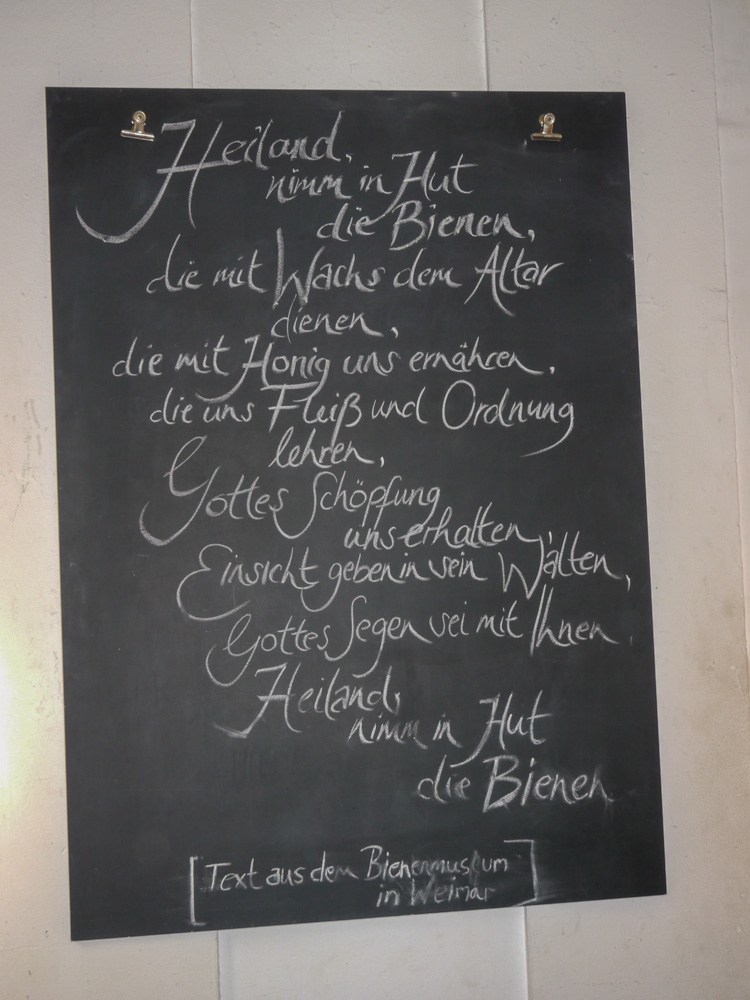 Heiland,
nimm in Hut
die Bienen,
die mit Wachs dem Altar
dienen,
die mit Honig uns ernähren,
die uns Fleiß und Ordnung
lehren,
Gottes Schöpfung
uns erhalten,
Einsicht geben in sein Walten,
Gottes Segen sei mit Ihnen
Heiland,
nimm in Hut
die Bienen
[Text aus dem Bienenmuseum
in Weimar]